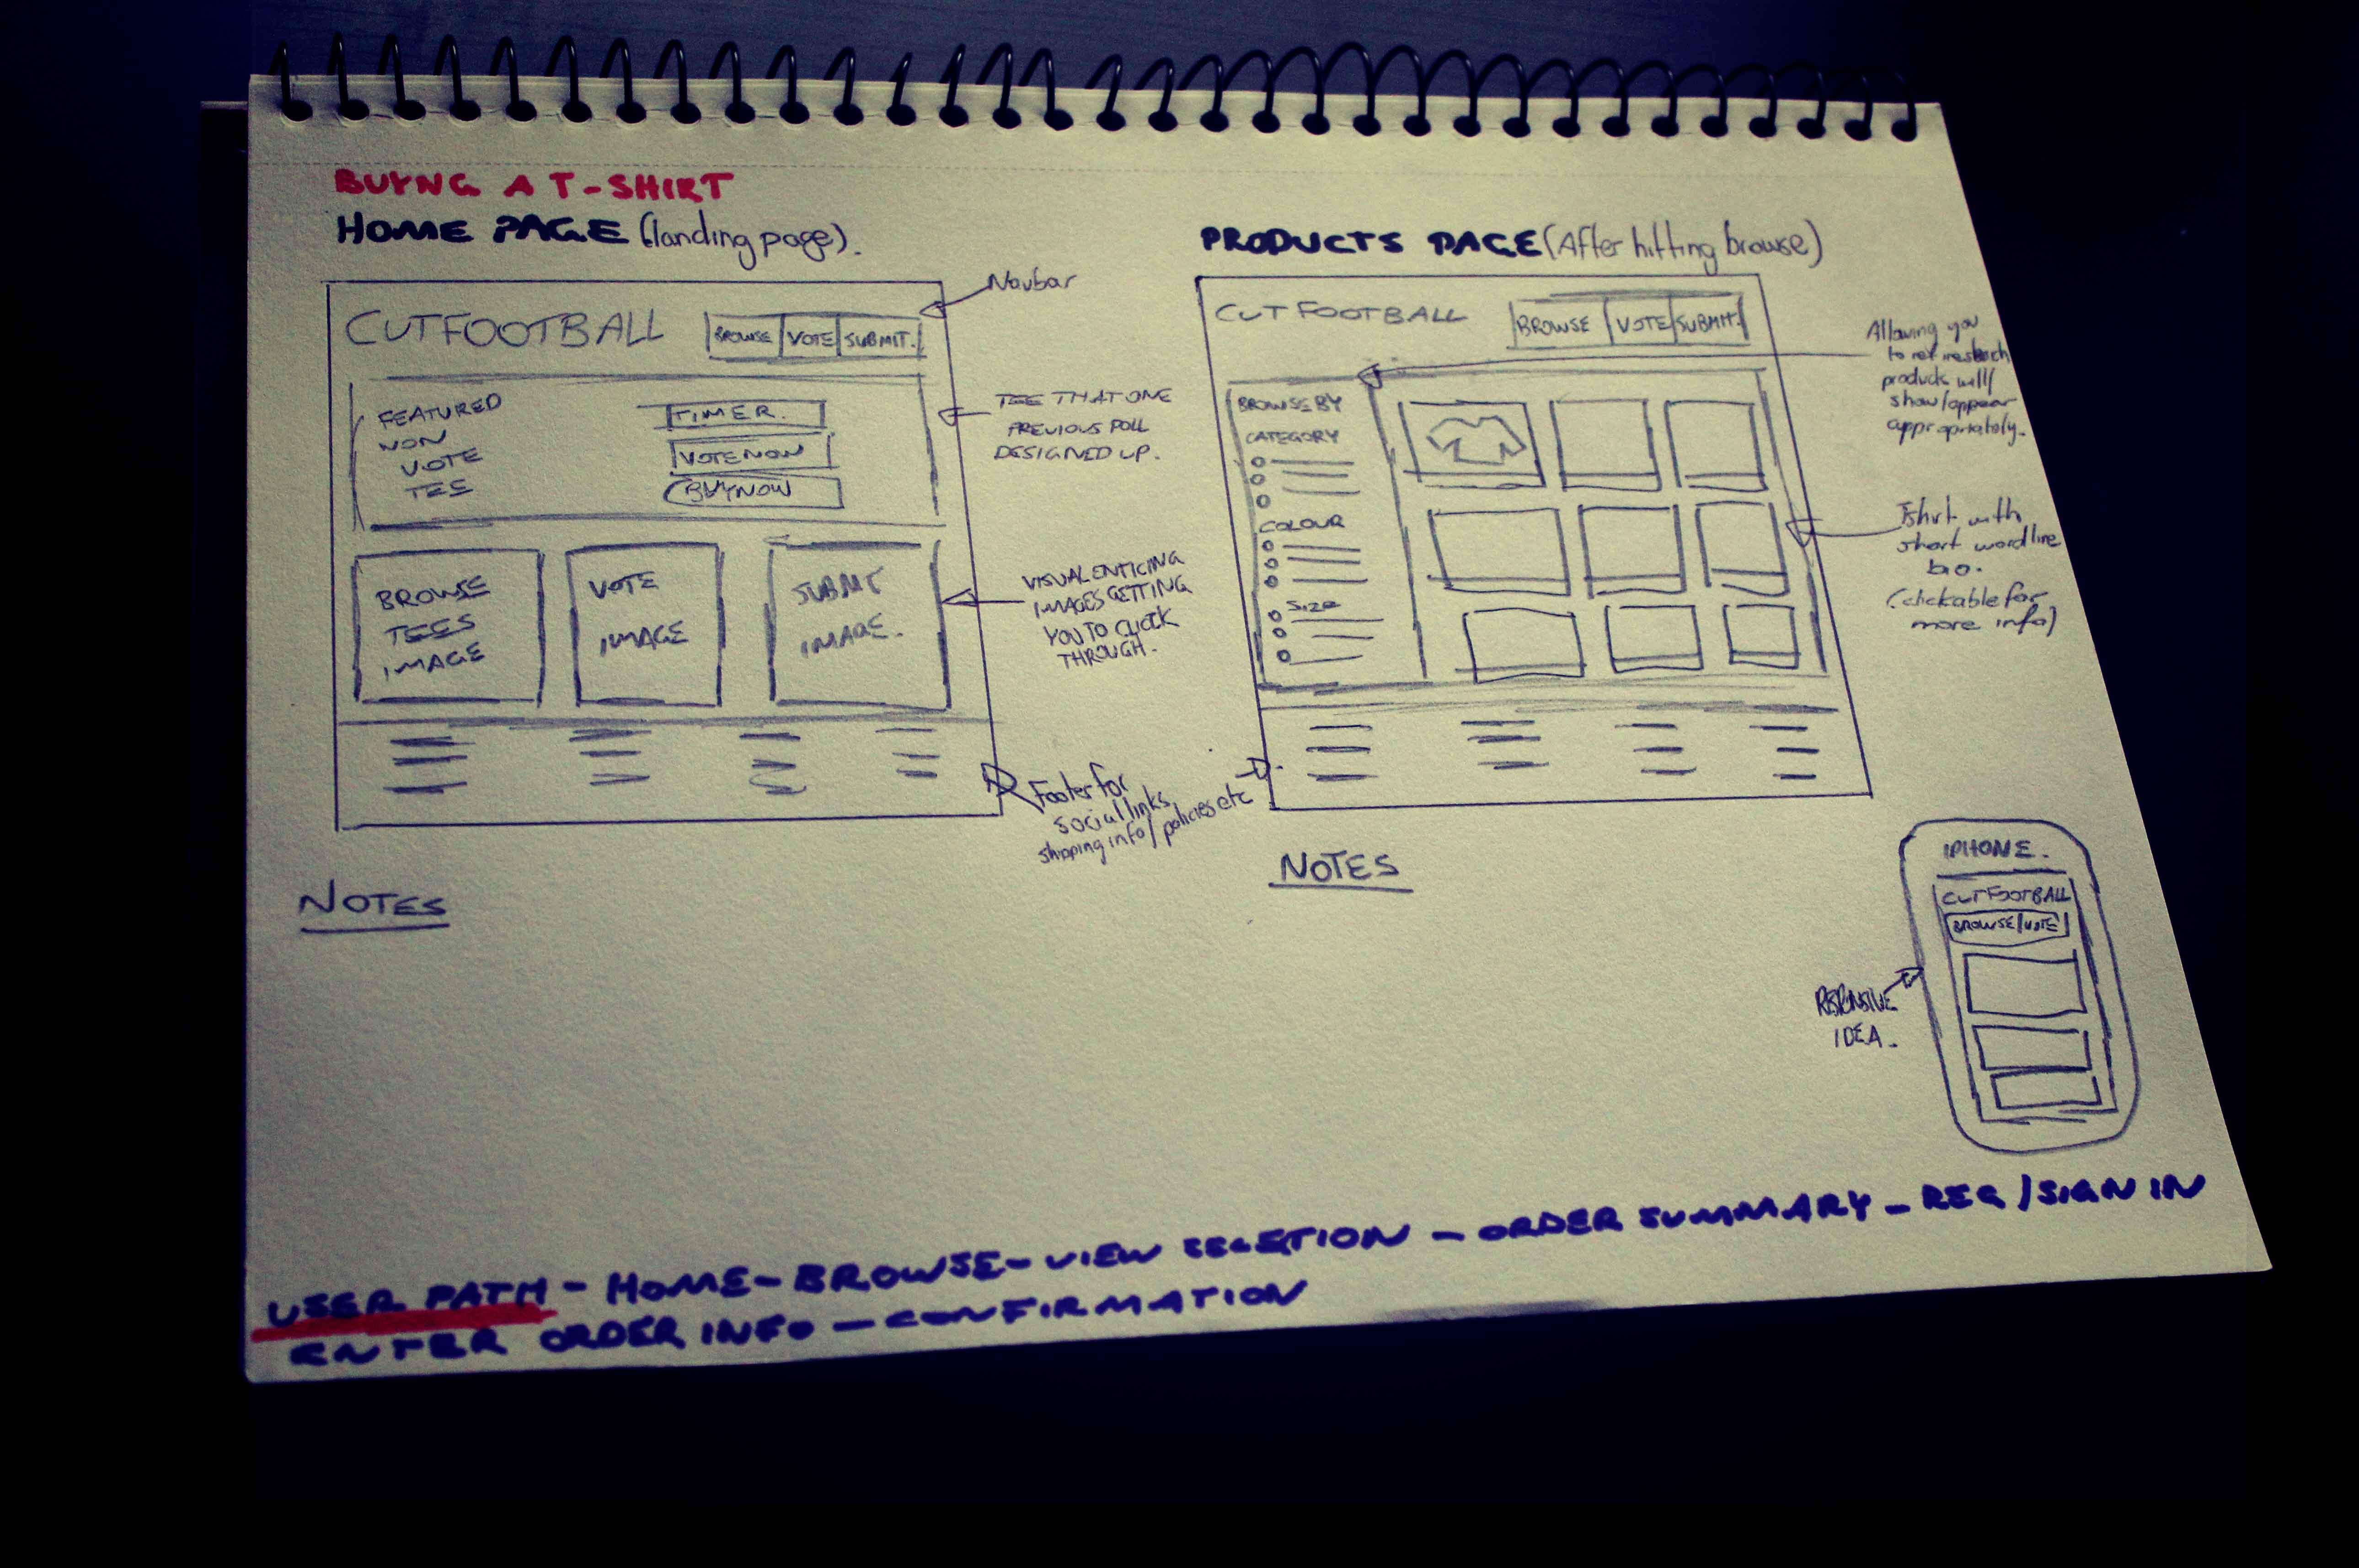 BUYNG A T-SHIRT
HOME PAGE (landing page).
CUTFOOTBALL
BROWSE VOTE SUBMIT.
Navbar
FEATURED
NON
VOTE
TEE
TIMER.
VOTE NOW
BUY NOW
TEE THAT ONE
PREVIOUS POLL
DESIGNED UP.
BROWSE
TEES
IMAGE
VOTE
IMAGE
SUBMT
IMAGE.
VISUAL ENTICING
IMAGES GETTING
YOU TO CLICK
THROUGH.
Footer for
social links,
shipping info/policies etc
NOTES
PRODUCTS PAGE (After hitting browse)
CUTFOOTBALL
BROWSE VOTE SUBMIT.
BROWSE BY
CATEGORY
COLOUR
SIZE
Allowing you
to
products will/
show/appear
appropriately.
Tshirt with
short word line
bio.
(clickable for
more info)
NOTES
IPHONE.
CUTFOOTBALL
BROWSE VOTE
IDEA.
USER PATH - HOME - BROWSE - VIEW SELETION - ORDER SUMMARY - REG / SIGN IN
ENTER ORDER INFO - CONFIRMATION